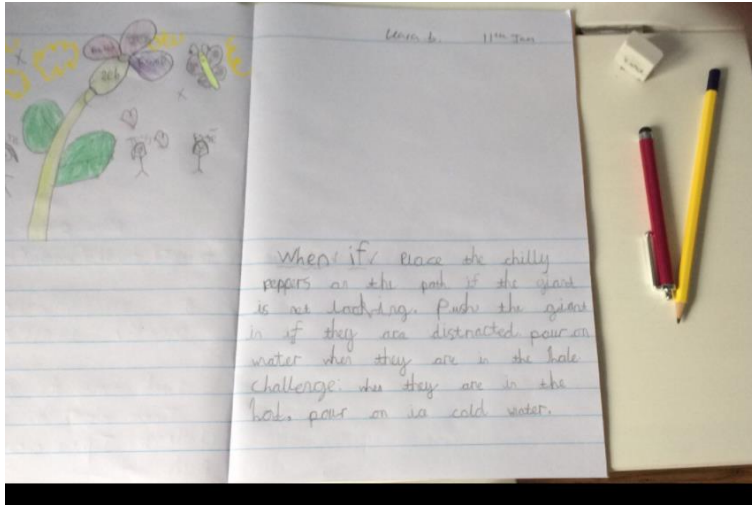 11th Jan
When if Place the chilly
peppers on the path if the giant
is not looking. Push the giant
in if they are distracted pour on
water when they are in the hole
challenge: when they are in the
hol. pour on ice cold water.